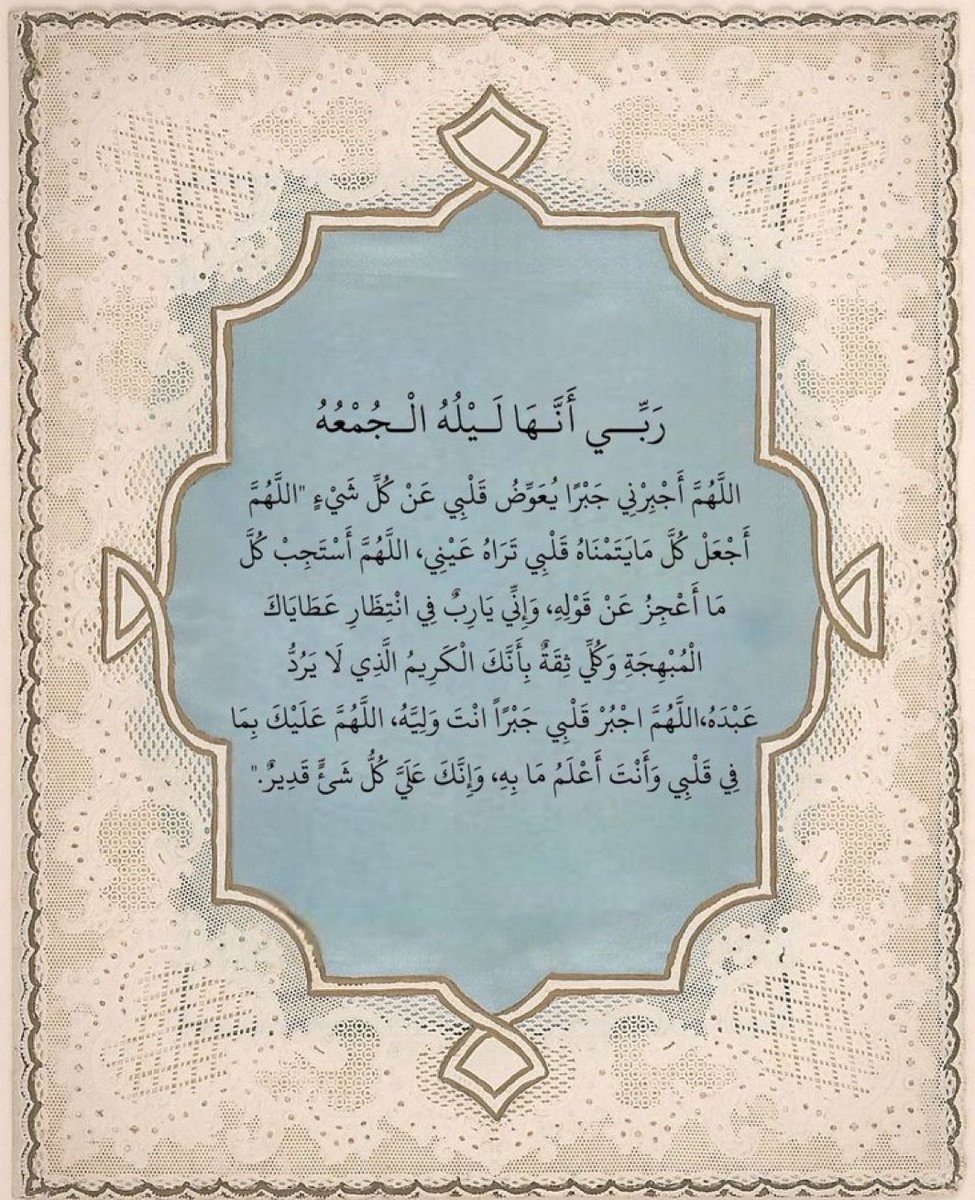 رَبِّـــي أَنَّـــهَا لَـــيْلُهُ الْـــجُمْعُهُ
اللَّهُمَّ أَجْبِرْنِي جَبْرًا يُعَوِّضُ قَلْبِي عَنْ كُلِّ شَيْءٍ "اللَّهُمَّ
أَجْعَلْ كُلَّ مَايَتَمْنَاهُ قَلْبِي تَرَاهُ عَيْنِي، اللَّهُمَّ أَسْتَجِبْ كُلَّ
مَا أَعْجِزُ عَنْ قَوْلِهِ، وَإِنِّي يَارِبٌ فِي انْتِظَارِ عَطَايَاكَ
الْمُبْهِجَةِ وَكُلِّي ثِقَةٌ بِأَنَّكَ الْكَرِيمُ الَّذِي لَا يَرُدُّ
عَبْدَهُ،اللَّهُمَّ اجْبُرْ قَلْبِي جَبْرَاً انْتَ وَلِيَّهُ، اللَّهُمَّ عَلَيْكَ بِمَا
فِي قَلْبِي وَأَنْتَ أَعْلَمُ مَا بِهِ، وَإِنَّكَ عَلَيَّ كُلُّ شَئٍّ قَدِيرٌ."